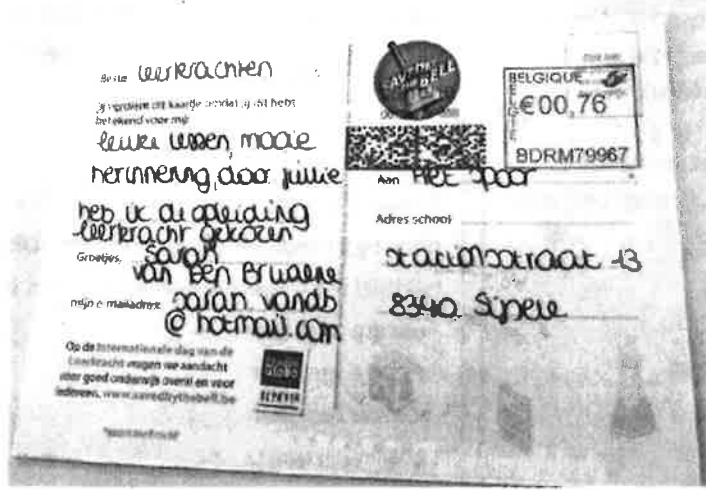 Beste leerkrachten
Jij verdient dit kaartje omdat jij dit hebt
betekend voor mij:
leuke lessen, mooie
herinnering, door jullie
heb ik de opleiding
leerkracht gekozen
Groetjes, Sarah
van Den Bruaene
mijn e-mailadres: sarah_vandb
@hotmail.com
Op de Internationale dag van de
Leerkracht vragen we aandacht
voor goed onderwijs overal en voor
iedereen. www.savedbythebell.be
BELGIQUE
BELGIE
€00,76
BDRM79967
Aan Het Spoor
Adres school
stationsstraat 13
8340 Sijsele